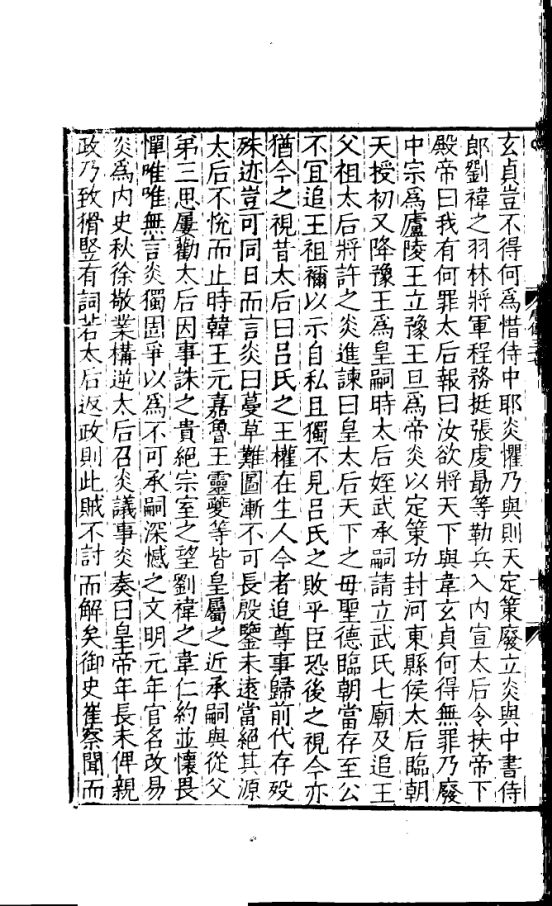 玄貞豈不得何爲惜侍中耶炎懼乃與則天定策廢立炎與中書侍
郎劉禕之羽林將軍程務挺張虔勗等勒兵入內宣太后令扶帝下
殿帝曰我有何罪太后報曰汝欲將天下與韋玄貞何得無罪乃廢
中宗爲廬陵王立豫王旦爲帝炎以定策功封河東縣侯太后臨朝
天授初又降豫王爲皇嗣時太后姪武承嗣請立武氏七廟及追王
父祖太后將許之炎進諫曰皇太后天下之母聖德臨朝當存至公
不宜追王祖禰以示自私且獨不見呂氏之敗乎臣恐後之視今亦
猶今之視昔太后曰呂氏之王權在生人今者追尊事歸前代存歿
殊迹豈可同日而言炎曰蔓草難圖漸不可長殷鑒未遠當絕其源
太后不悅而止時韓王元嘉魯王靈夔等皆皇屬之近承嗣與從父
弟三思屢勸太后因事誅之貴絕宗室之望劉禕之韋仁約並懷畏
憚唯唯無言炎獨固爭以爲不可承嗣深憾之文明元年官名改易
炎爲內史秋徐敬業構逆太后召炎議事炎奏曰皇帝年長未俾親
政乃致猾豎有詞若太后返政則此賊不討而解矣御史崔察聞而